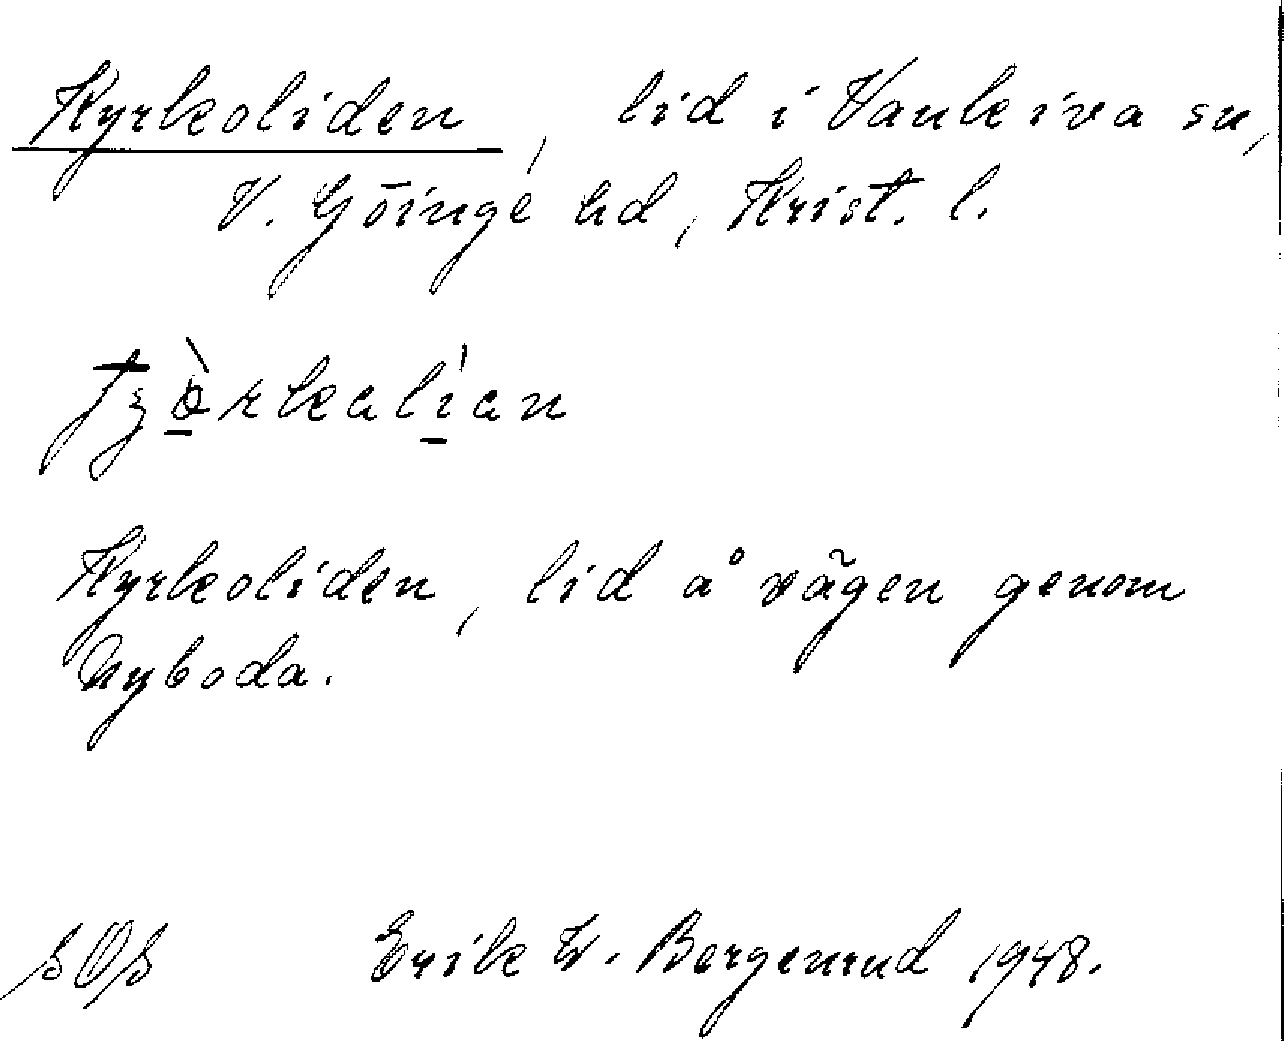 Kyrkoliden, lid i Vankiva sn,
V. Göinge hd, Krist. l.
Kyrkoliden, lid å vägen genom
Nyboda.
sOs Erik W. Bergenrud 1948.